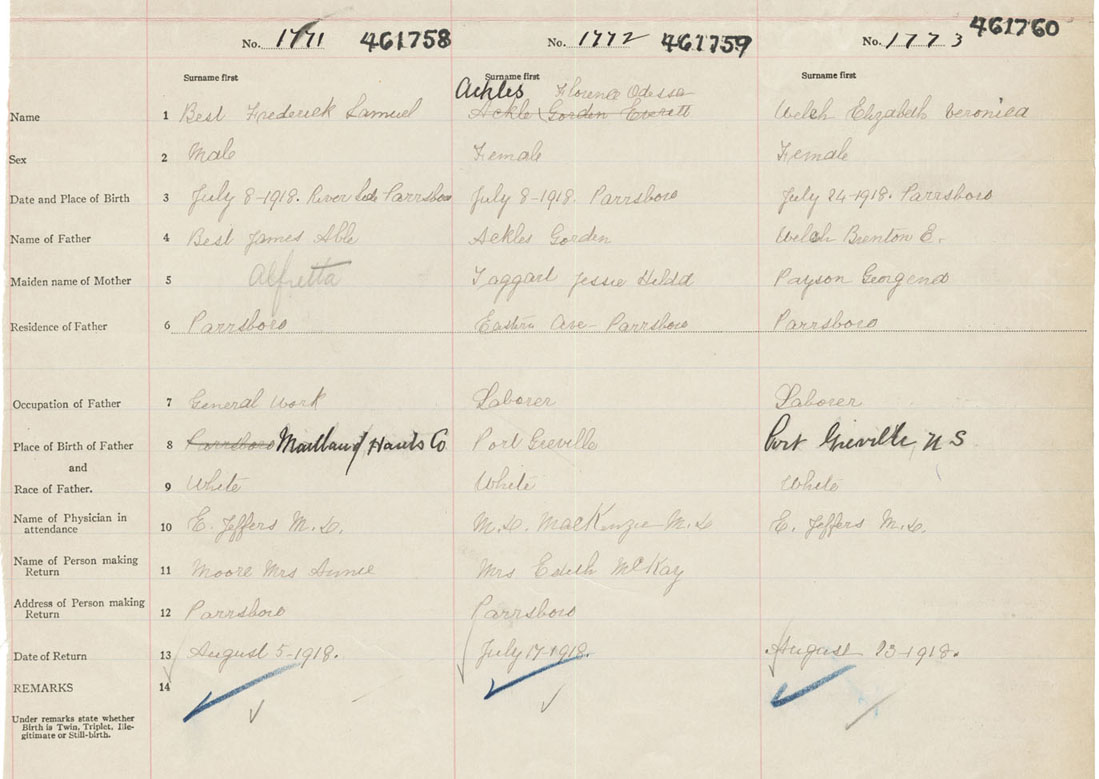 No. 1771 461758 No. 1772 461759 No. 1773 461760
Surname first Surname first Surname first
Ackles Florence Odessa
Name 1 Best Frederick Samuel Ackle Gorden Everett Welch Elizabeth Veronica
Sex 2 Male Female Female
Date and Place of Birth 3 July 8-1918. River Side Parrsboro July 8-1918. Parrsboro July 24-1918. Parrsboro
Name of Father 4 Best James Able Ackles Gorden Welch Brenton E.
Maiden name of Mother 5 Alfretta Taggart Jessie Hilda Payson Georgena
Residence of Father 6 Parrsboro Eastern Ave- Parrsboro Parrsboro
Occupation of Father 7 General Work Laborer Laborer
Place of Birth of Father 8 Parrsboro Maitland Hants Co Port Greville Port Greville, N S
and
Race of Father. 9 White White White
Name of Physician in
attendance 10 E. Jeffers M.D. M.D. MacKenzie M.D E. Jeffers M.D.
Name of Person making
Return 11 Moore Mrs Annie Mrs Edith McKay
Address of Person making
Return 12 Parrsboro Parrsboro
Date of Return 13 August 5-1918. July 17-1918. August 23-1918.
REMARKS 14
Under remarks state whether
Birth is Twin, Triplet, Ille-
gitimate or Still-birth.